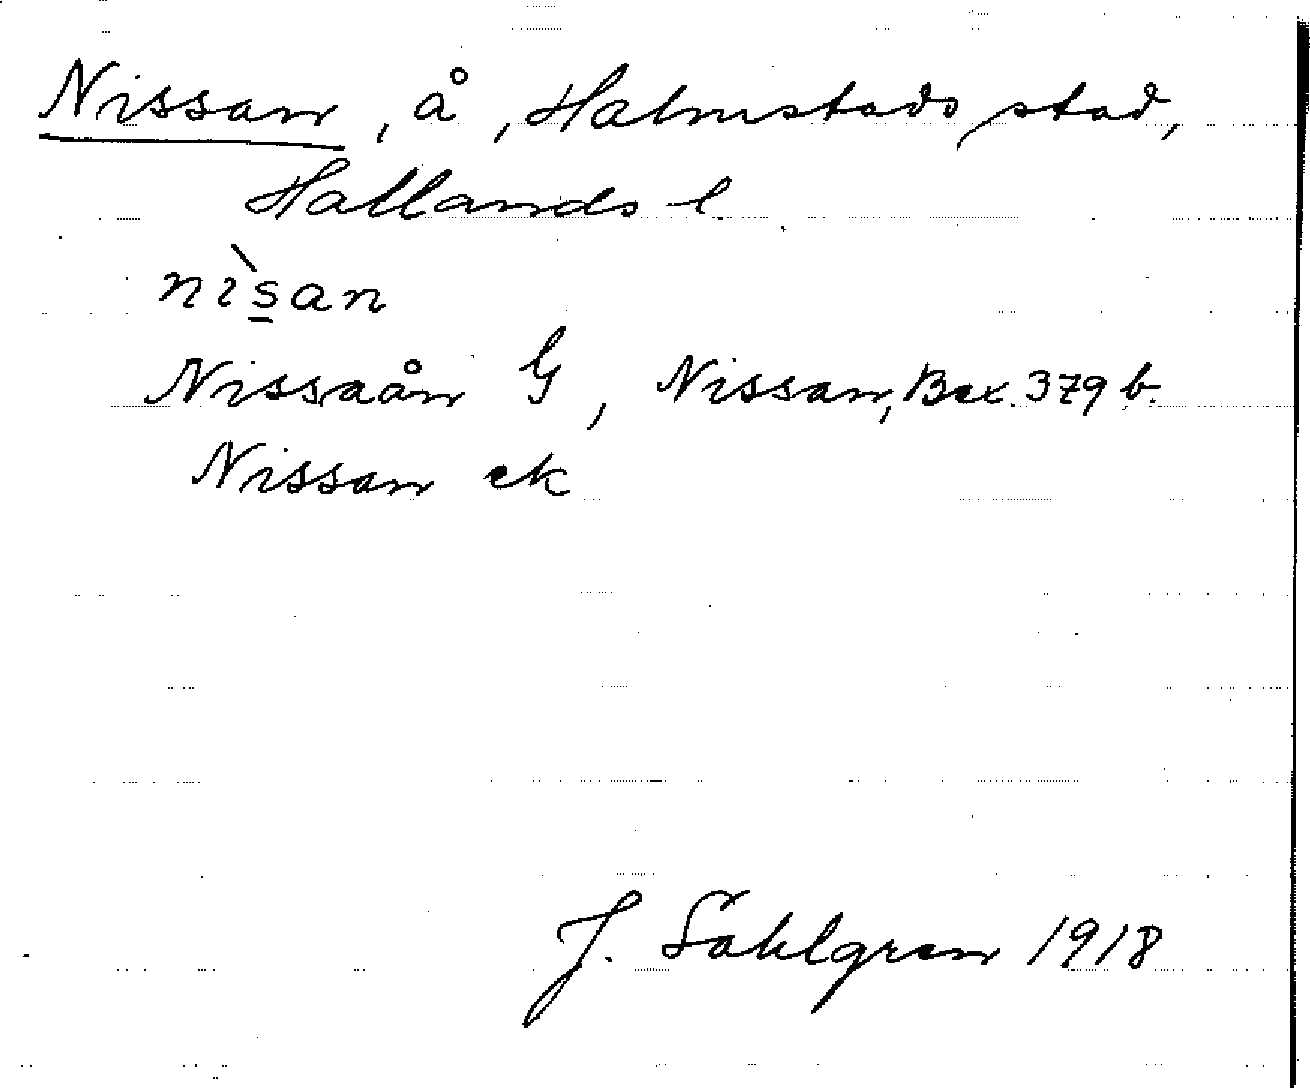 Nissan, å, Halmstads stad,
Hallands l
nìs̲an
Nissaån G, Nissan, Bex. 379 b.
Nissan ek
J. Sahlgren 1918